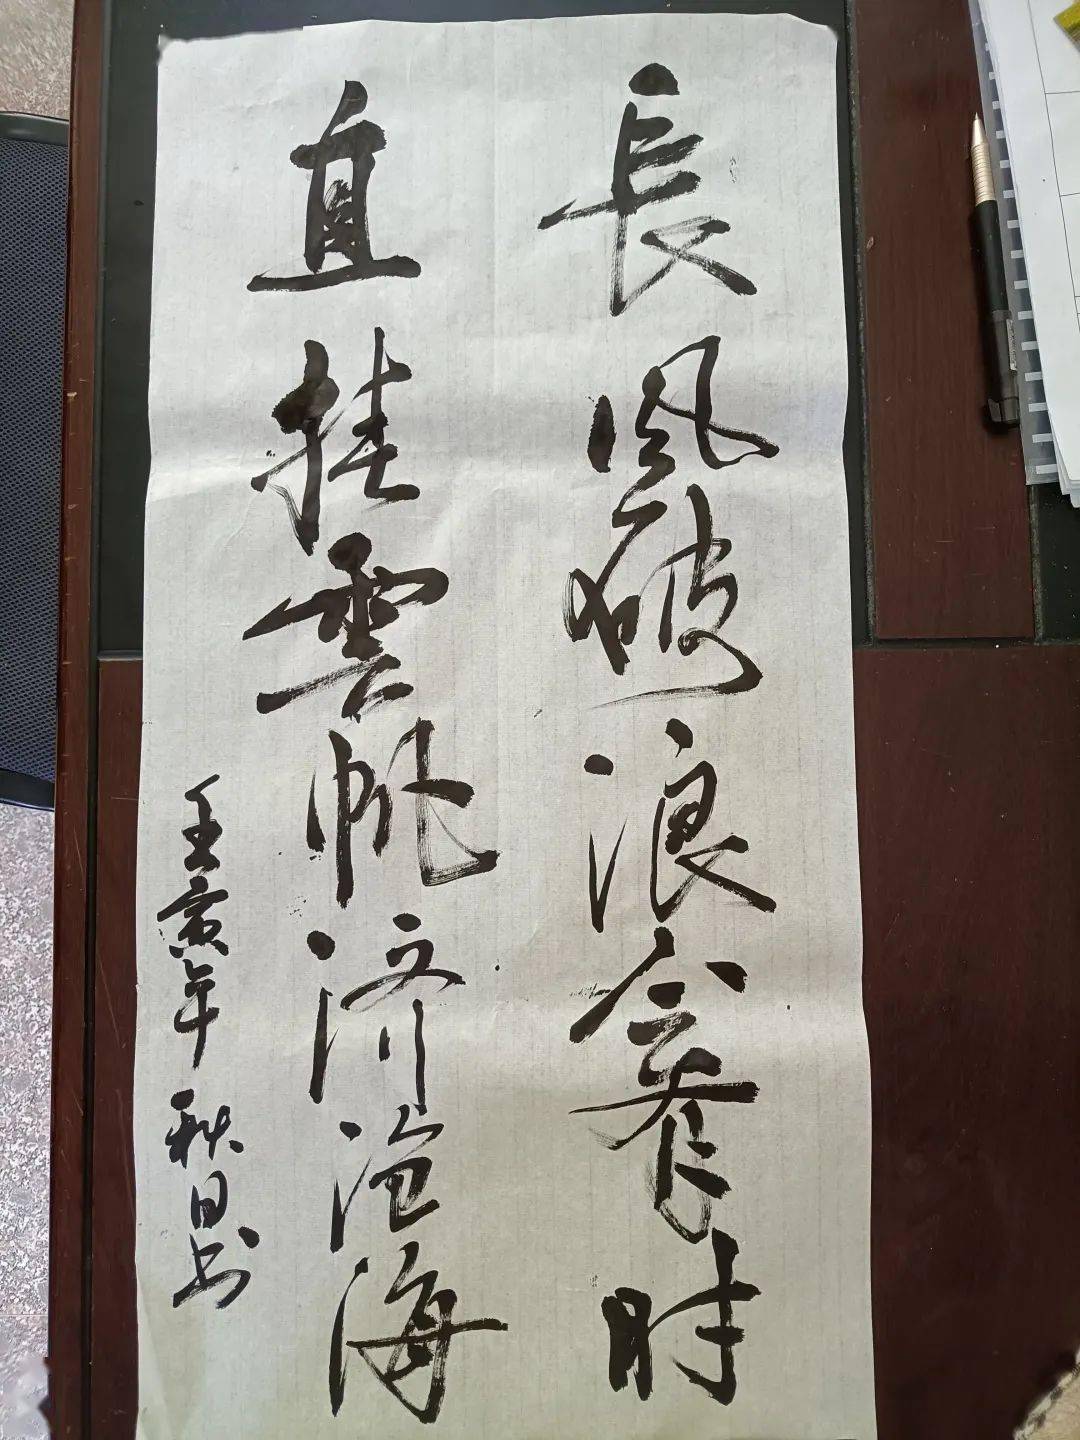 長風破浪會有時
直挂雲帆济滄海
壬寅年秋日书